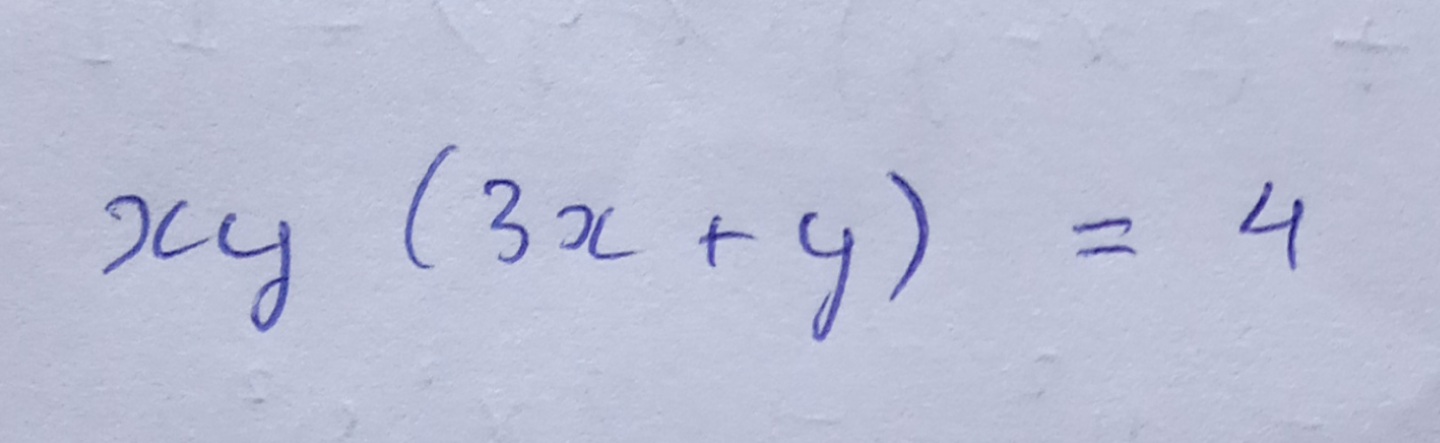 xy (3x + y) = 4